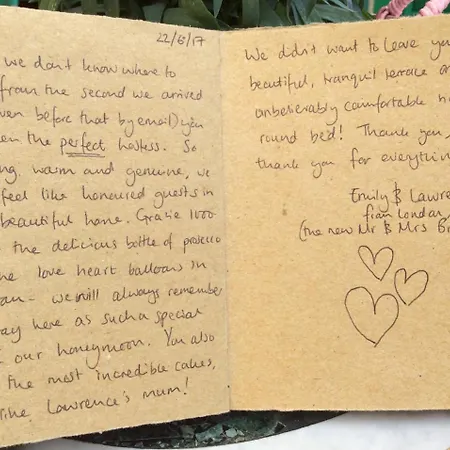 22/6/17
we don't know where to
from the second we arrived
even before that by email) you
the perfect hostess. So
warm and genuine, we
feel like honoured guests in
beautiful home. Grazie 1000
the delicious bottle of prosecco
love heart balloons in
we will always remember
here as such a special
our honeymoon. You also
the most incredible cakes,
Lawrence's mum!
We didn't want to leave
beautiful, tranquil terrace
unbelievably comfortable
round bed! Thank you,
thank you for everything
Emily &
from London,
(the new Mr & Mrs